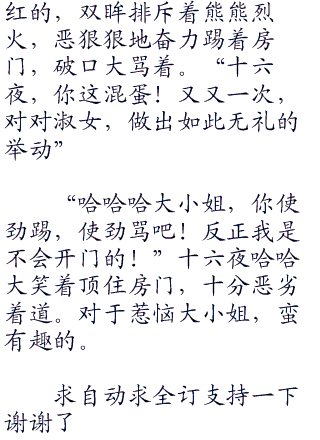 红的，双眸排斥着熊熊烈
火，恶狠狠地奋力踢着房
门，破口大骂着。“十六
夜，你这混蛋！又又一次，
对对淑女，做出如此无礼的
举动”
“哈哈哈大小姐，你使
劲踢，使劲骂吧！反正我是
不会开门的！”十六夜哈哈
大笑着顶住房门，十分恶劣
着道。对于惹恼大小姐，蛮
有趣的。
求自动求全订支持一下
谢谢了